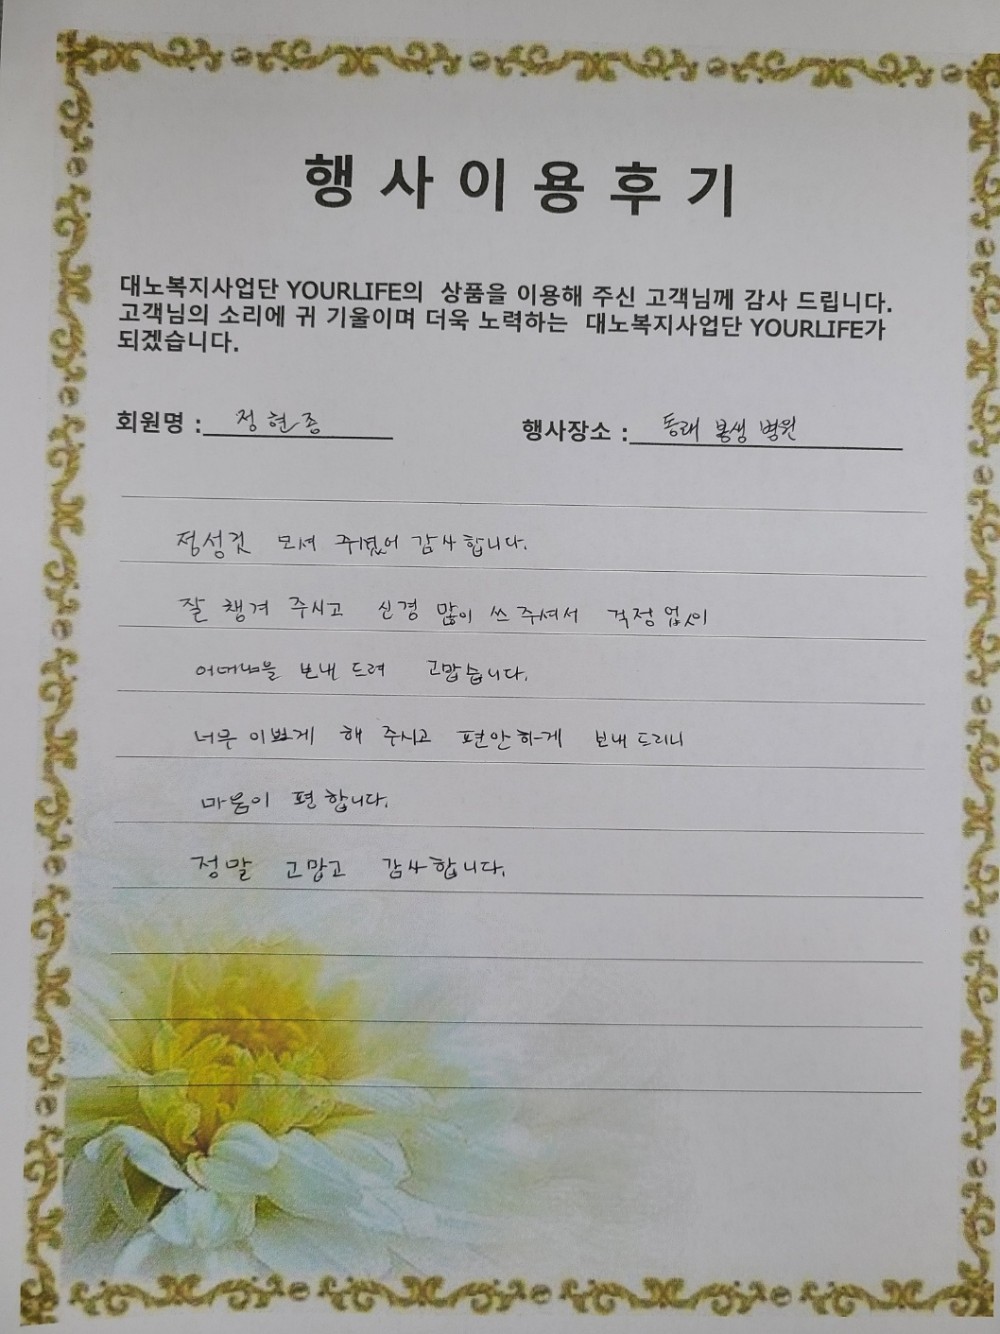 행사이용후기
대노복지사업단 YOURLIFE의 상품을 이용해 주신 고객님께 감사 드립니다.
고객님의 소리에 귀 기울이며 더욱 노력하는 대노복지사업단 YOURLIFE가
되겠습니다.
회원명 : 정현종 행사장소 : 동래 봉생 병원
정성껏 모셔 주셨어 감사합니다.
잘 챙겨 주시고 신경 많이 쓰 주셔서 걱정 없이
어머님을 보내 드려 고맙습니다.
너무 이쁘게 해 주시고 편안하게 보내 드리니
마음이 편합니다.
정말 고맙고 감사합니다.